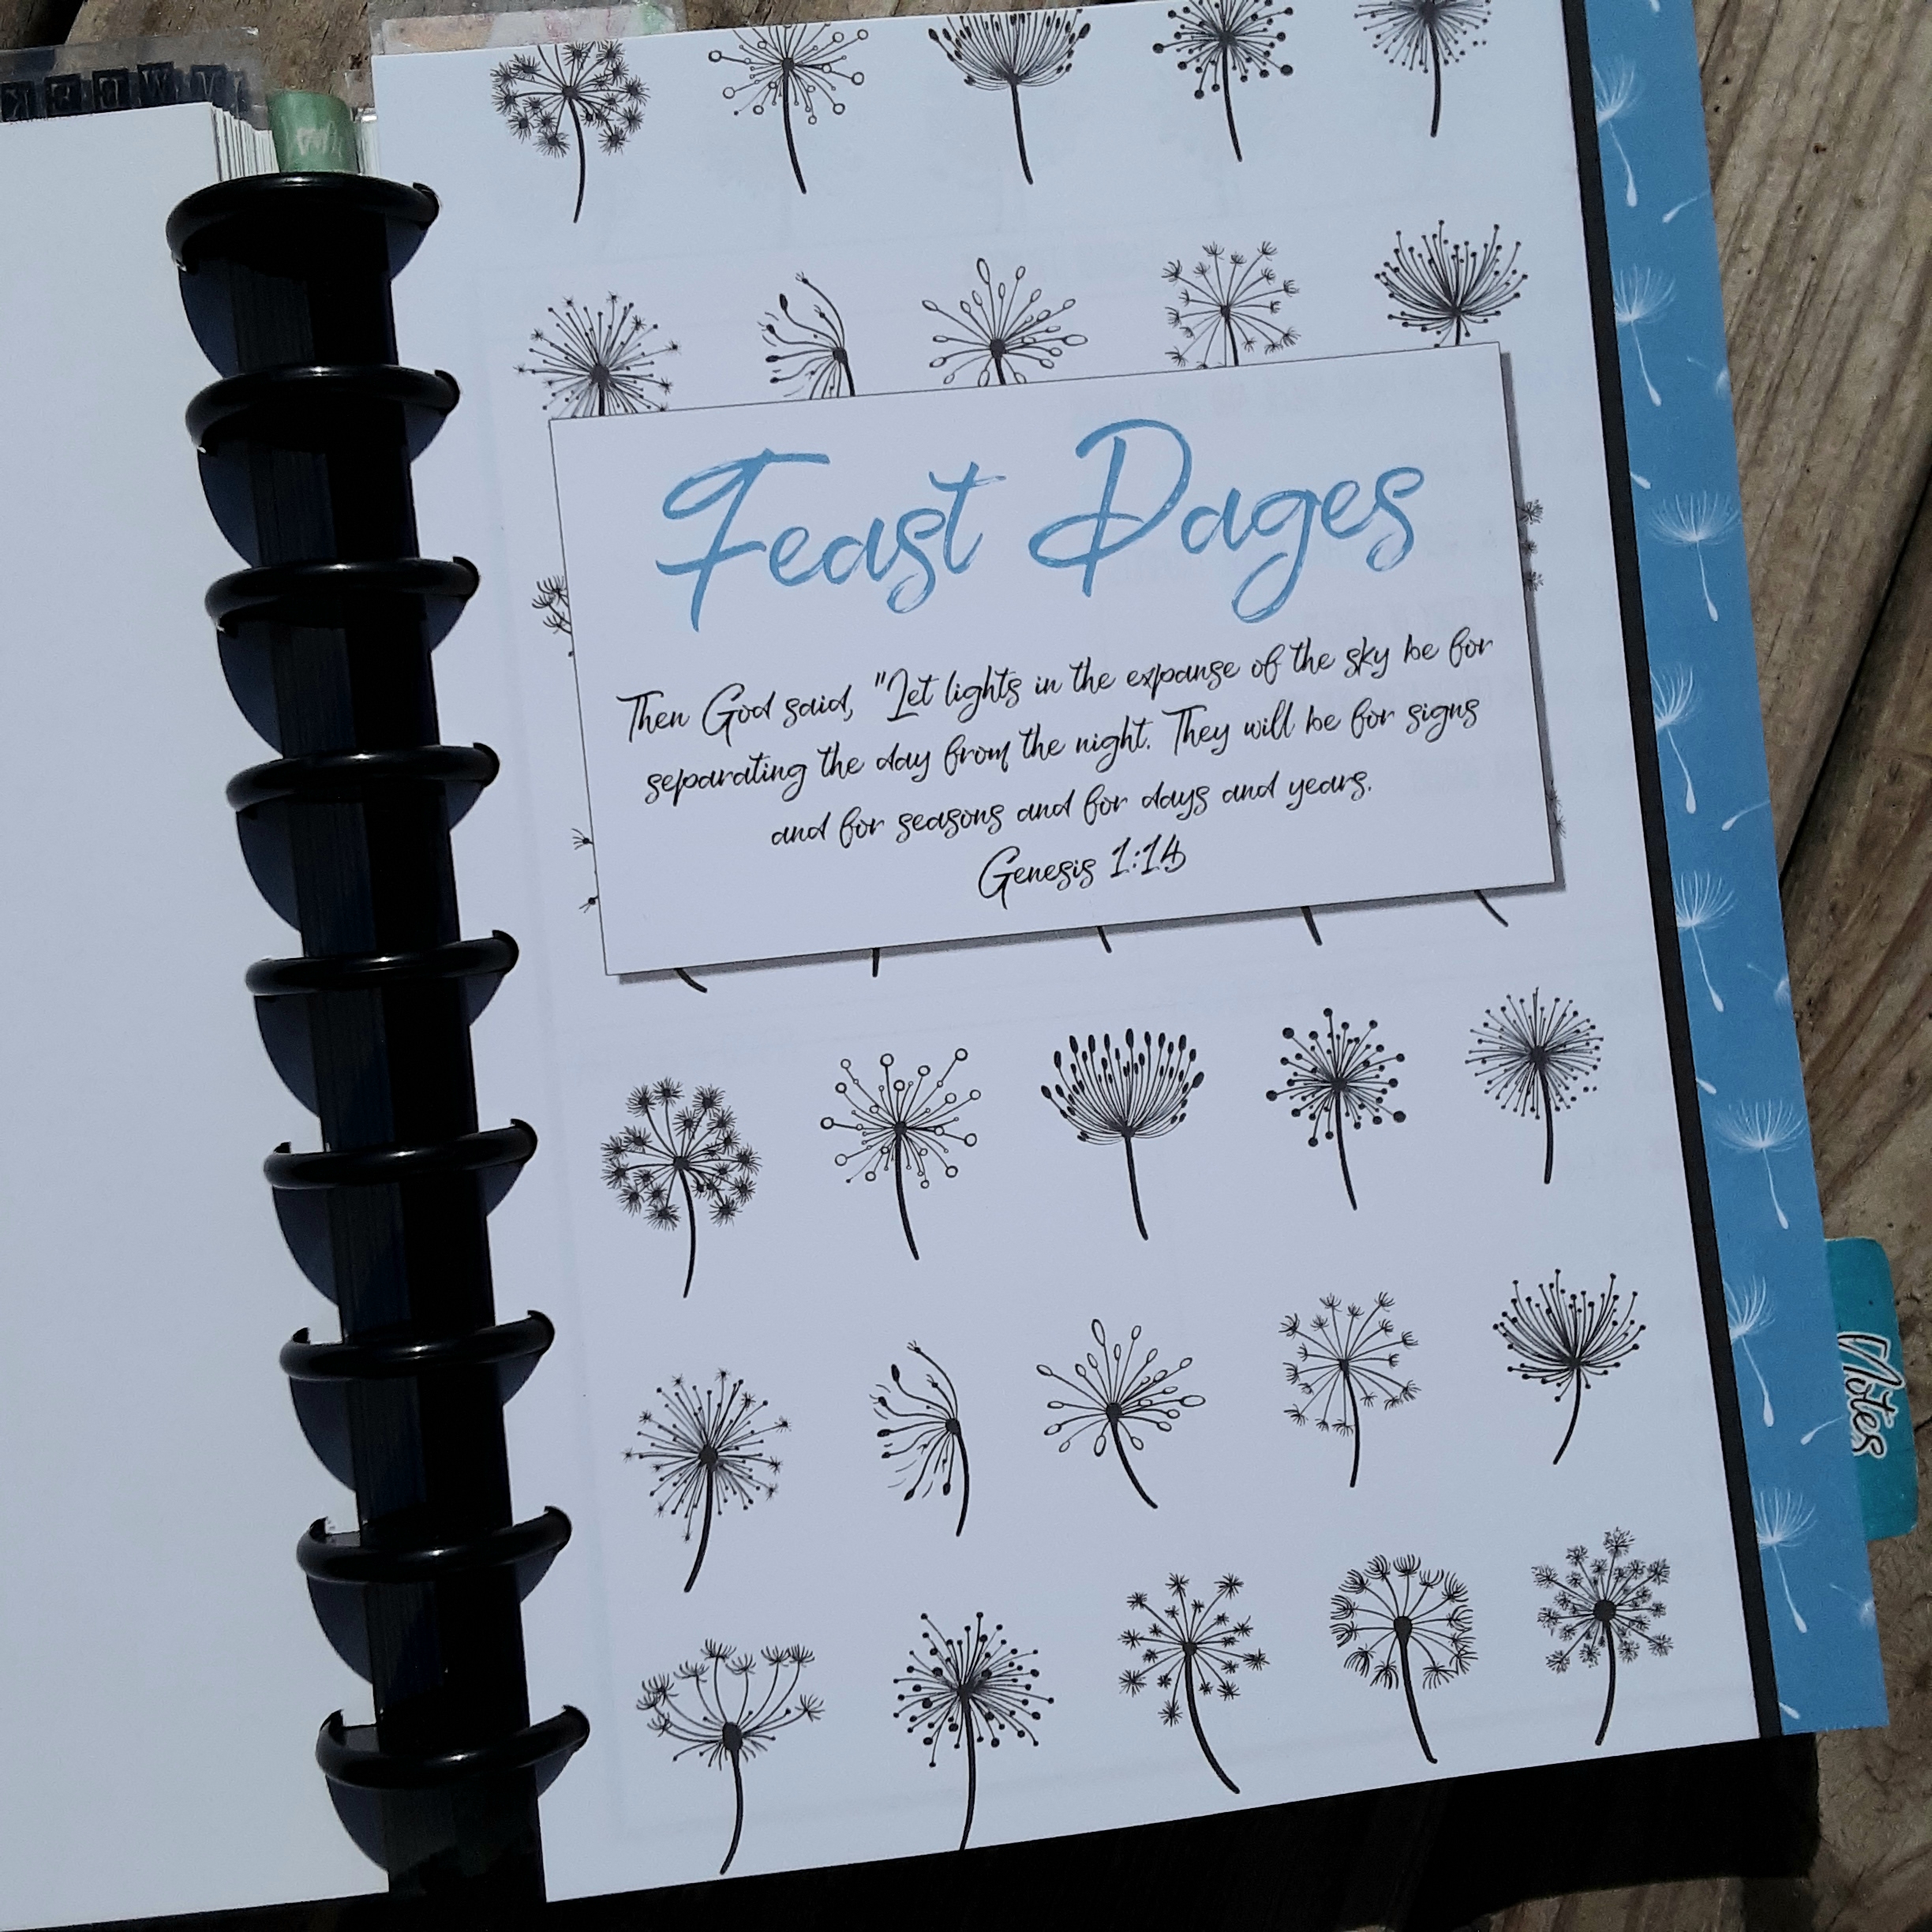 Feast Pages
Then God said, "Let lights in the expanse of the sky be for
separating the day from the night. They will be for signs
and for seasons and for days and years.
Genesis 1:14
Notes